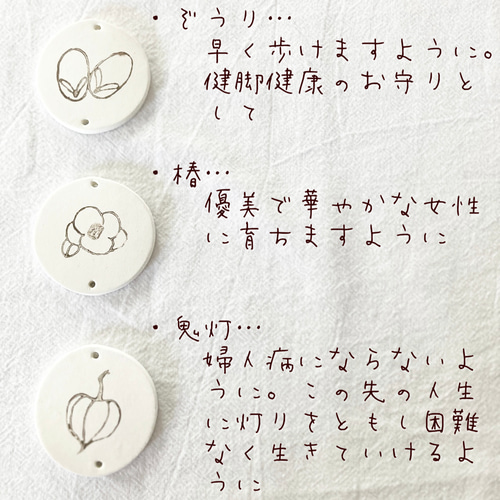 ・ぞうり…
早く歩けますように。
健脚健康のお守りと
して
・椿…
優美で華やかな女性
に育ちますように
・鬼灯…
婦人病にならないよ
うに。この先の人生
に灯りをともし困難
なく生きていけるよ
うに